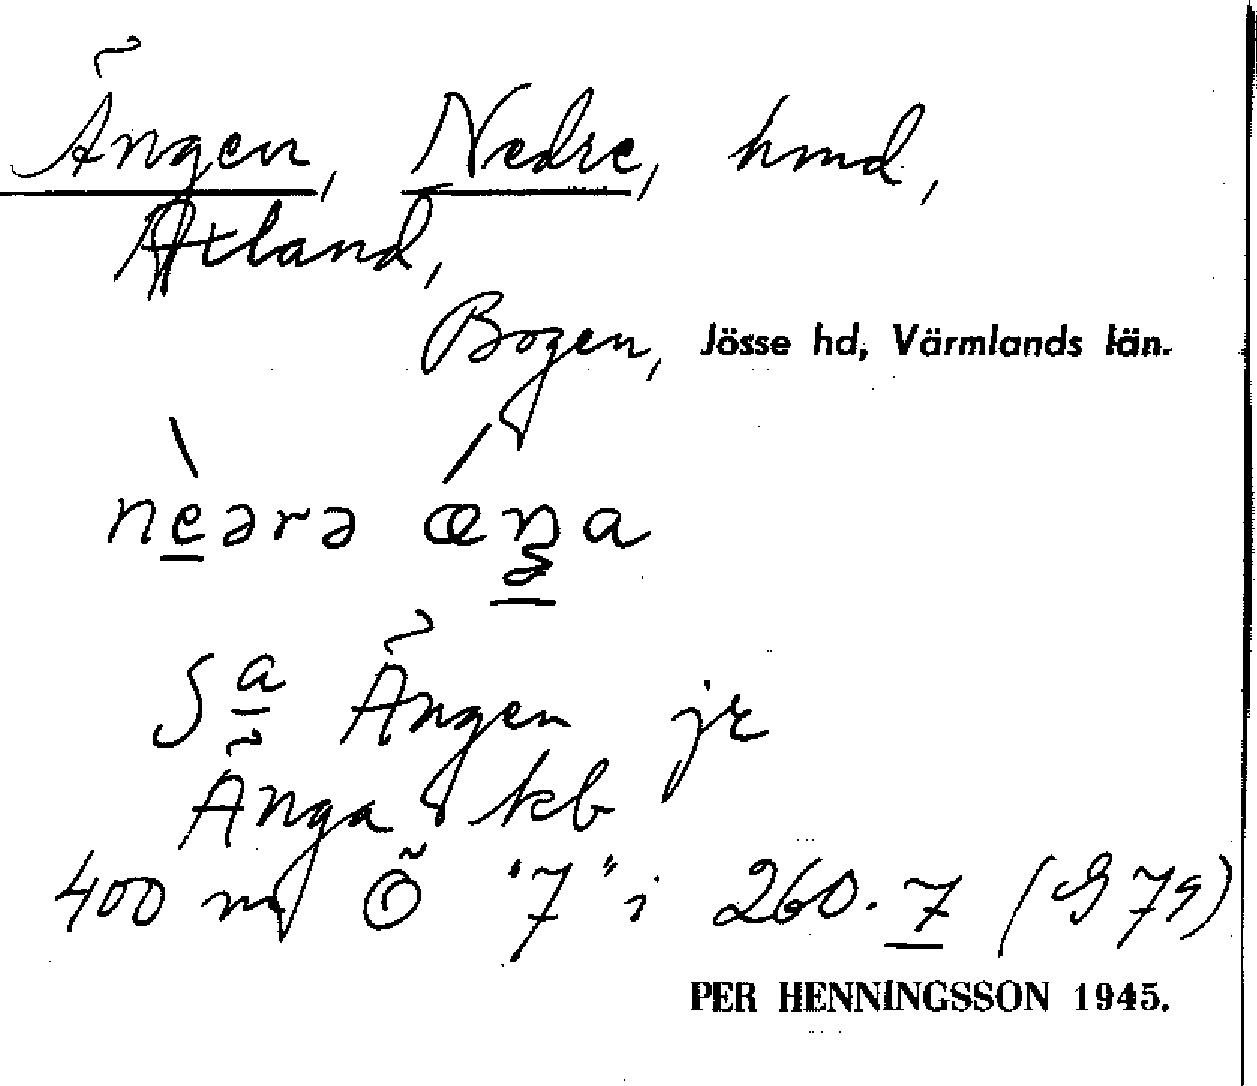 Ängen, Nedre, hmd,
Åtland,
Bogen, Jösse hd, Värmlands län.
nèərə ǽŋa
Sa Ängen jr
Änga kb
400 m Ö "7" i 260.7 (G 7s)
PER HENNINGSSON 1945.